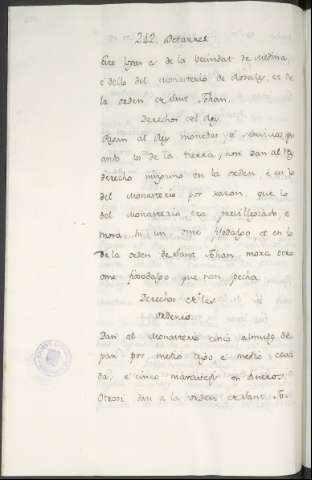 242. Betarres
Este logar es de la Vecindat de Medina,
e dello del Monasterio de Rosales, et de
la orden de Sant Johan.
Derechos del Rey
Pagan al Rey monedas, e servicios qu
ando los de la tierra, non dan al Rey
derecho ninguno en la orden, e en lo
del Monasterio por razon, que lo
del Monasterio era previllegiado, e
mora hi un ome fijodalgo, et en lo
de la orden de Sant Johan, mora otro
ome fijodalgo que non pecha.
Derechos de los
Sennores.
Dan al Monasterio cinco almudes de
pan por medio trigo, e medio ceva
da, e cinco maravedis en dineros.
Otrosi dan a la orden de Sant Jo-